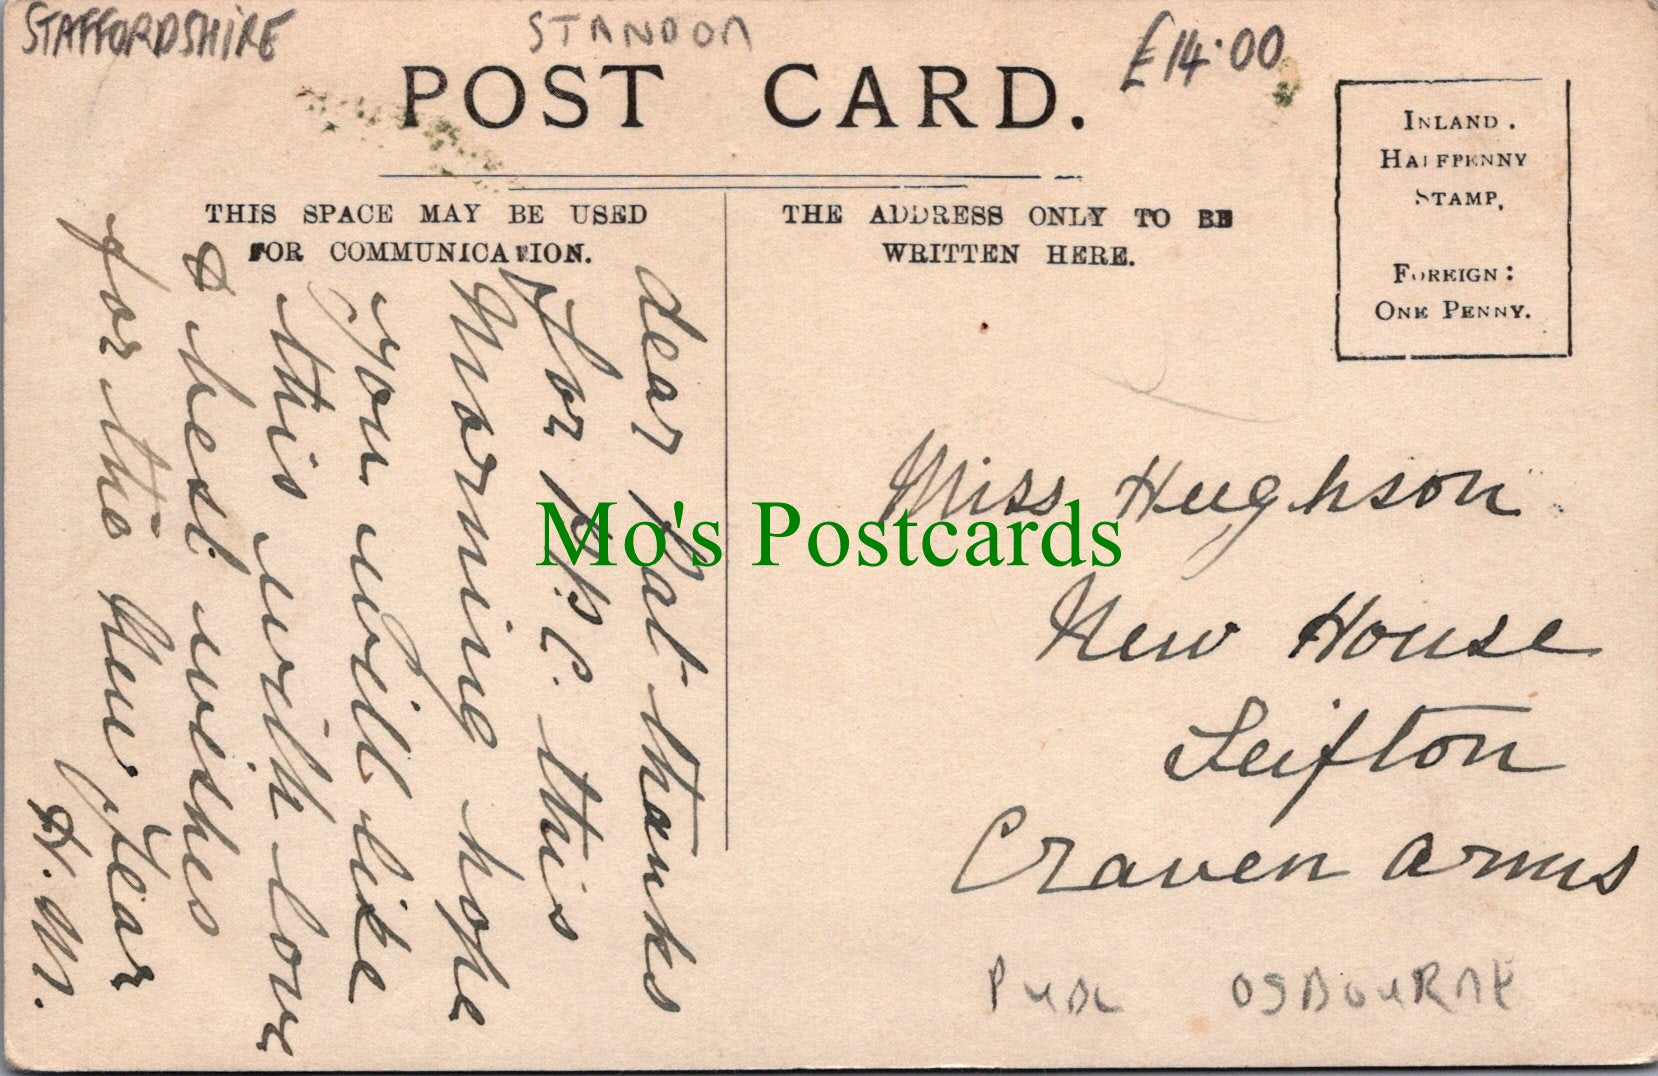 STAFFORDSHIRE
STANDON
£14.00
POST CARD.
THIS SPACE MAY BE USED
FOR COMMUNICATION.
THE ADDRESS ONLY TO BE
WRITTEN HERE.
INLAND.
HALFPENNY
STAMP,
FOREIGN:
ONE PENNY.
dear Pat thanks
for P.P.C. this
morning hope
you will like
this with love
& best wishes
for the New Year
H.M.
Miss Hughson
New House
Seifton
Craven Arms
Mo's Postcards
PUBL OSBOURNE